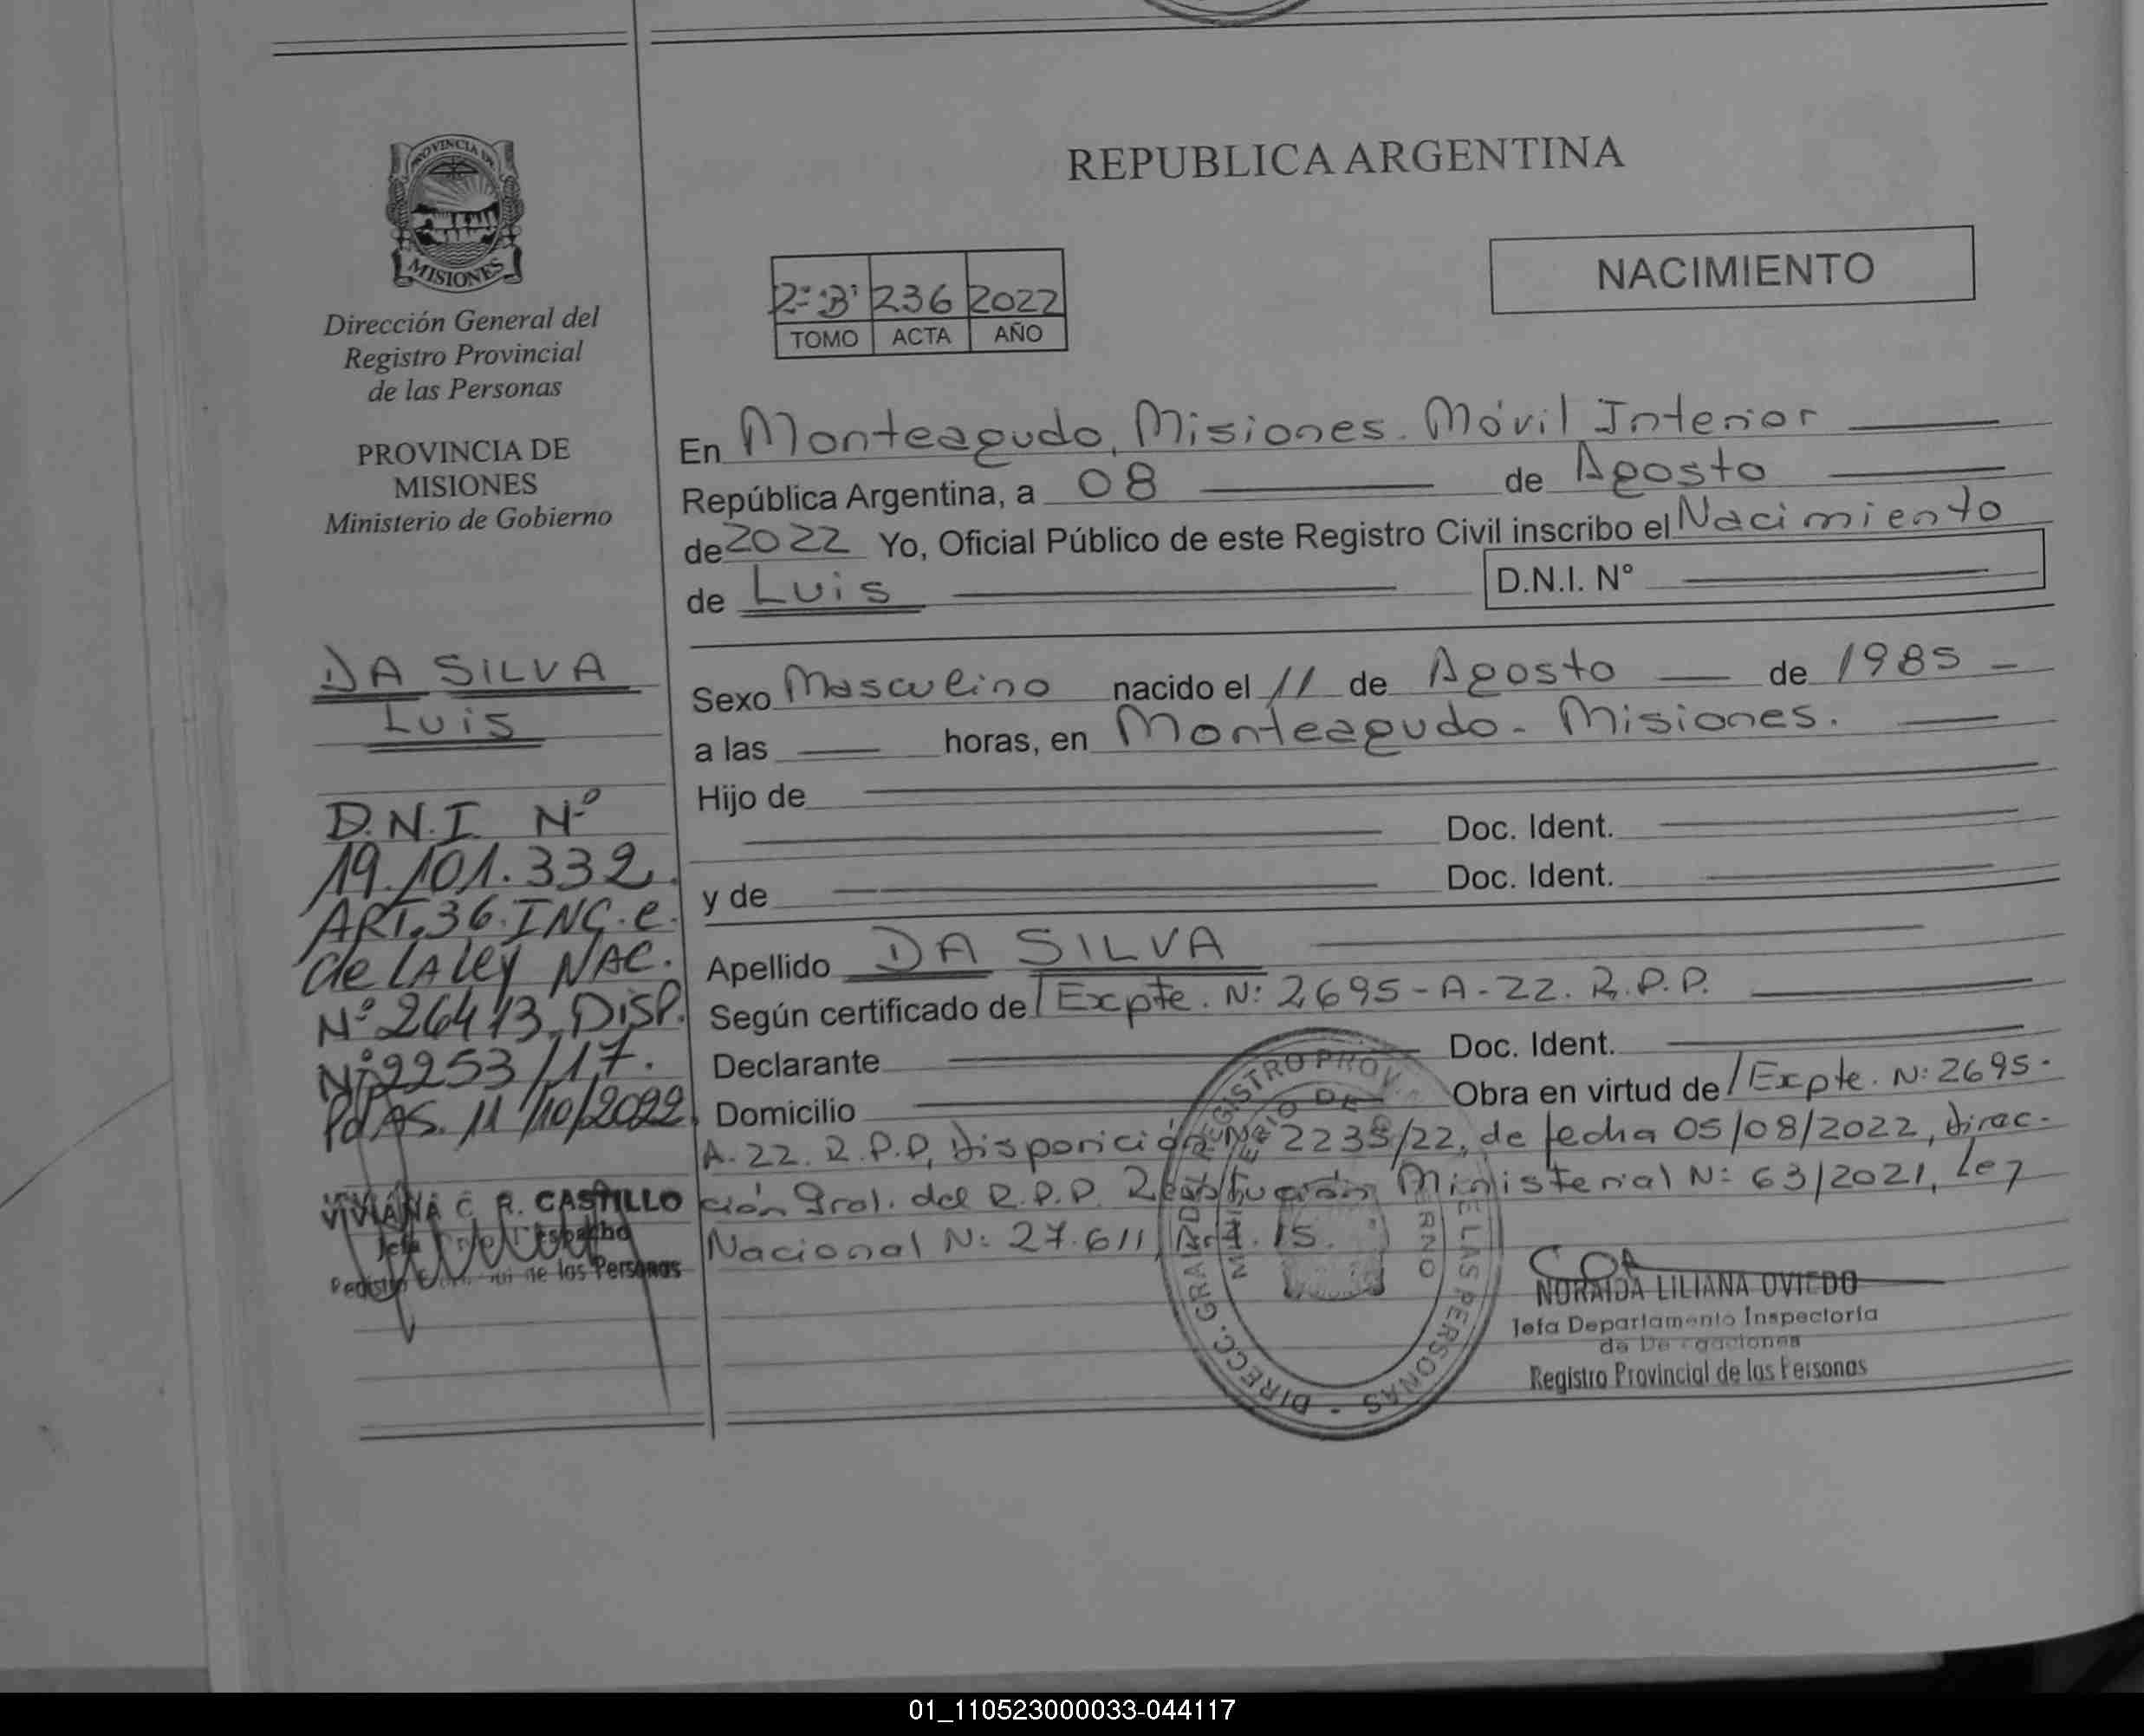 PROVINCIA DE
MISIONES
Dirección General del
Registro Provincial
de las Personas
PROVINCIA DE
MISIONES
Ministerio de Gobierno
DA SILVA
Luis
D.N.I. Nº
19.101.332.
ART.36.INC.e.
de LA Ley NAC.
Nº 26413, DISP.
Nº 2253/17.
PdAS. 11/10/2022.
VIVIANA C. R. CASTILLO
Jefa Despacho
de las Personas
REPUBLICA ARGENTINA
NACIMIENTO
2º "B" 236 2022
TOMO ACTA AÑO
En Monteagudo, Misiones. Móvil Interior
República Argentina, a 08 de Agosto
de 2022 Yo, Oficial Público de este Registro Civil inscribo el Nacimiento
de Luis D.N.I. N°
Sexo Masculino nacido el 11 de Agosto de 1985
a las horas, en Monteagudo - Misiones.
Hijo de
Doc. Ident.
y de Doc. Ident.
Apellido DA SILVA
Según certificado de Expte. N: 2695-A-22. R.P.P.
Declarante Doc. Ident.
Domicilio Obra en virtud de Expte. N: 2695-
A-22. R.P.P, Disposición Nº /22, de fecha 05/08/2022, Direc-
ción Gral. del R.P.P. Ministerial N: 63/2021, Ley
Nacional N: 27.611, Art. 15.
DIRECC. GRAL DEL REGISTRO PROV. DE LAS PERSONAS -
MINISTERIO DE GOBIERNO
NORAIDA LILIANA OVIEDO
Jefa Departamento Inspectoría
de
Registro Provincial de las Personas
01_110523000033-044117